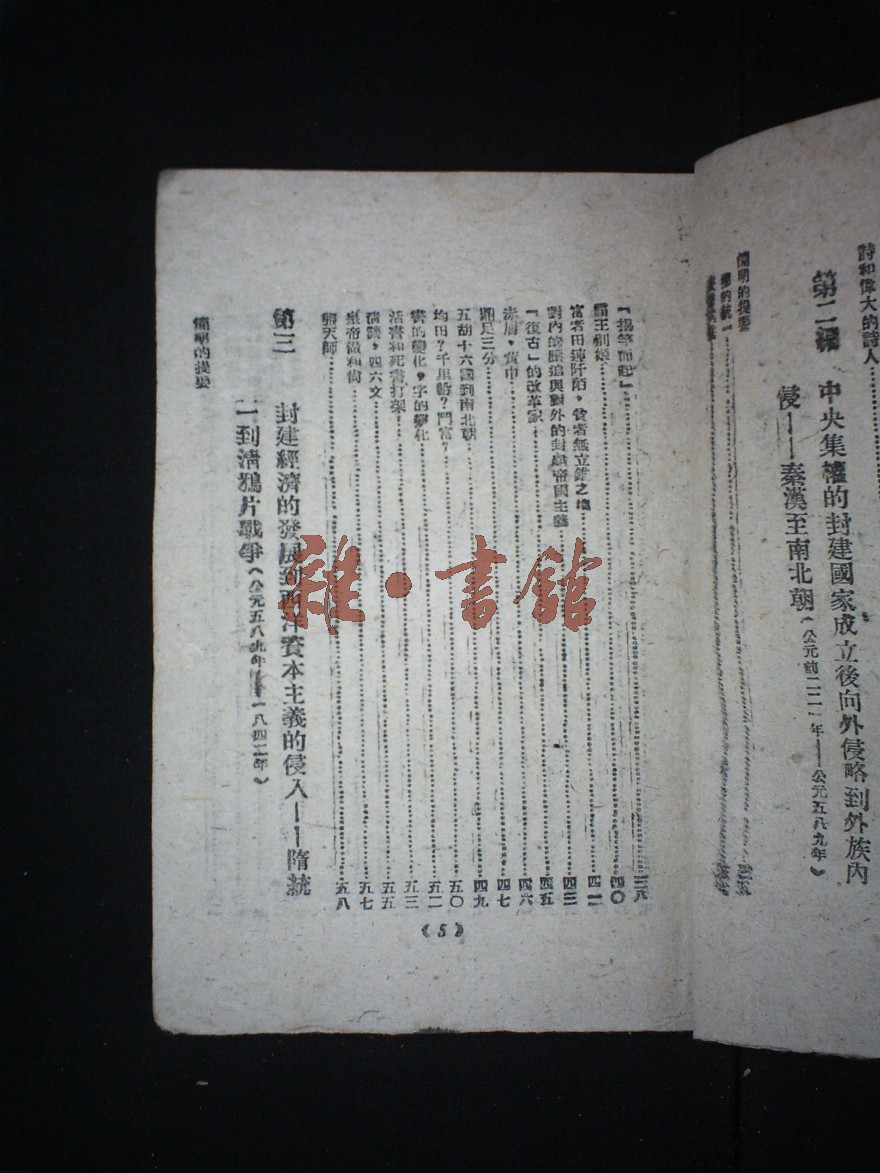 詩和偉大的詩人
第二編 中央集權的封建國家成立後向外侵略到外族內
侵——秦漢至南北朝(公元前二二一年——公元五八九年)
簡明的提要
「揭竿而起」三八
霸王別姬四〇
富者田連阡陌,貧者無立錐之地四一
對內的壓迫與對外的封建帝國主義四三
「復古」的改革家四五
赤眉,黃巾四六
鼎足三分四七
五胡十六國到南北朝四九
均田?千里船?鬥富?五〇
書的變化,字的變化五二
活書和死書打架五三
清談,四六文五五
皇帝做和尚五七
張天師五八
第三 封建經濟的發展到西洋資本主義的侵入——隋統
一到清鴉片戰爭(公元五八九年——一八四二年)
簡明的提要
(5)
雜·書館